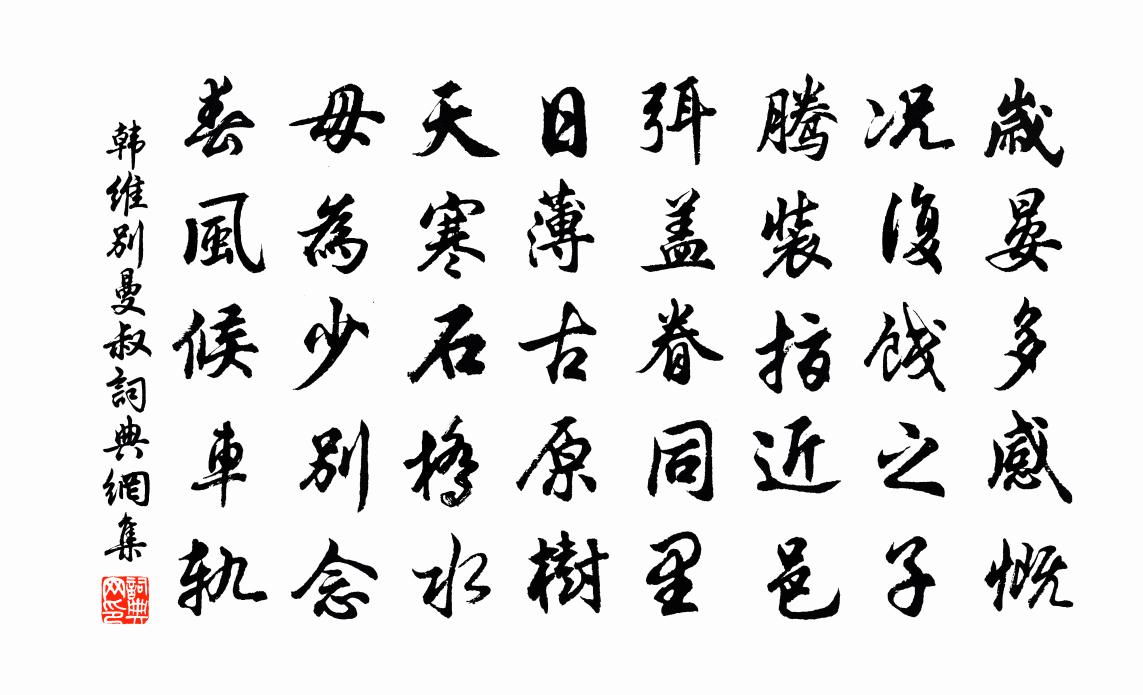 歲晏多感慨
况復餞之子
騰裝指近邑
弭盖眷同里
日薄古原樹
天寒石橋水
毋為少別念
春風候車軌
韩維別曼叔詞典網集
詞典网印